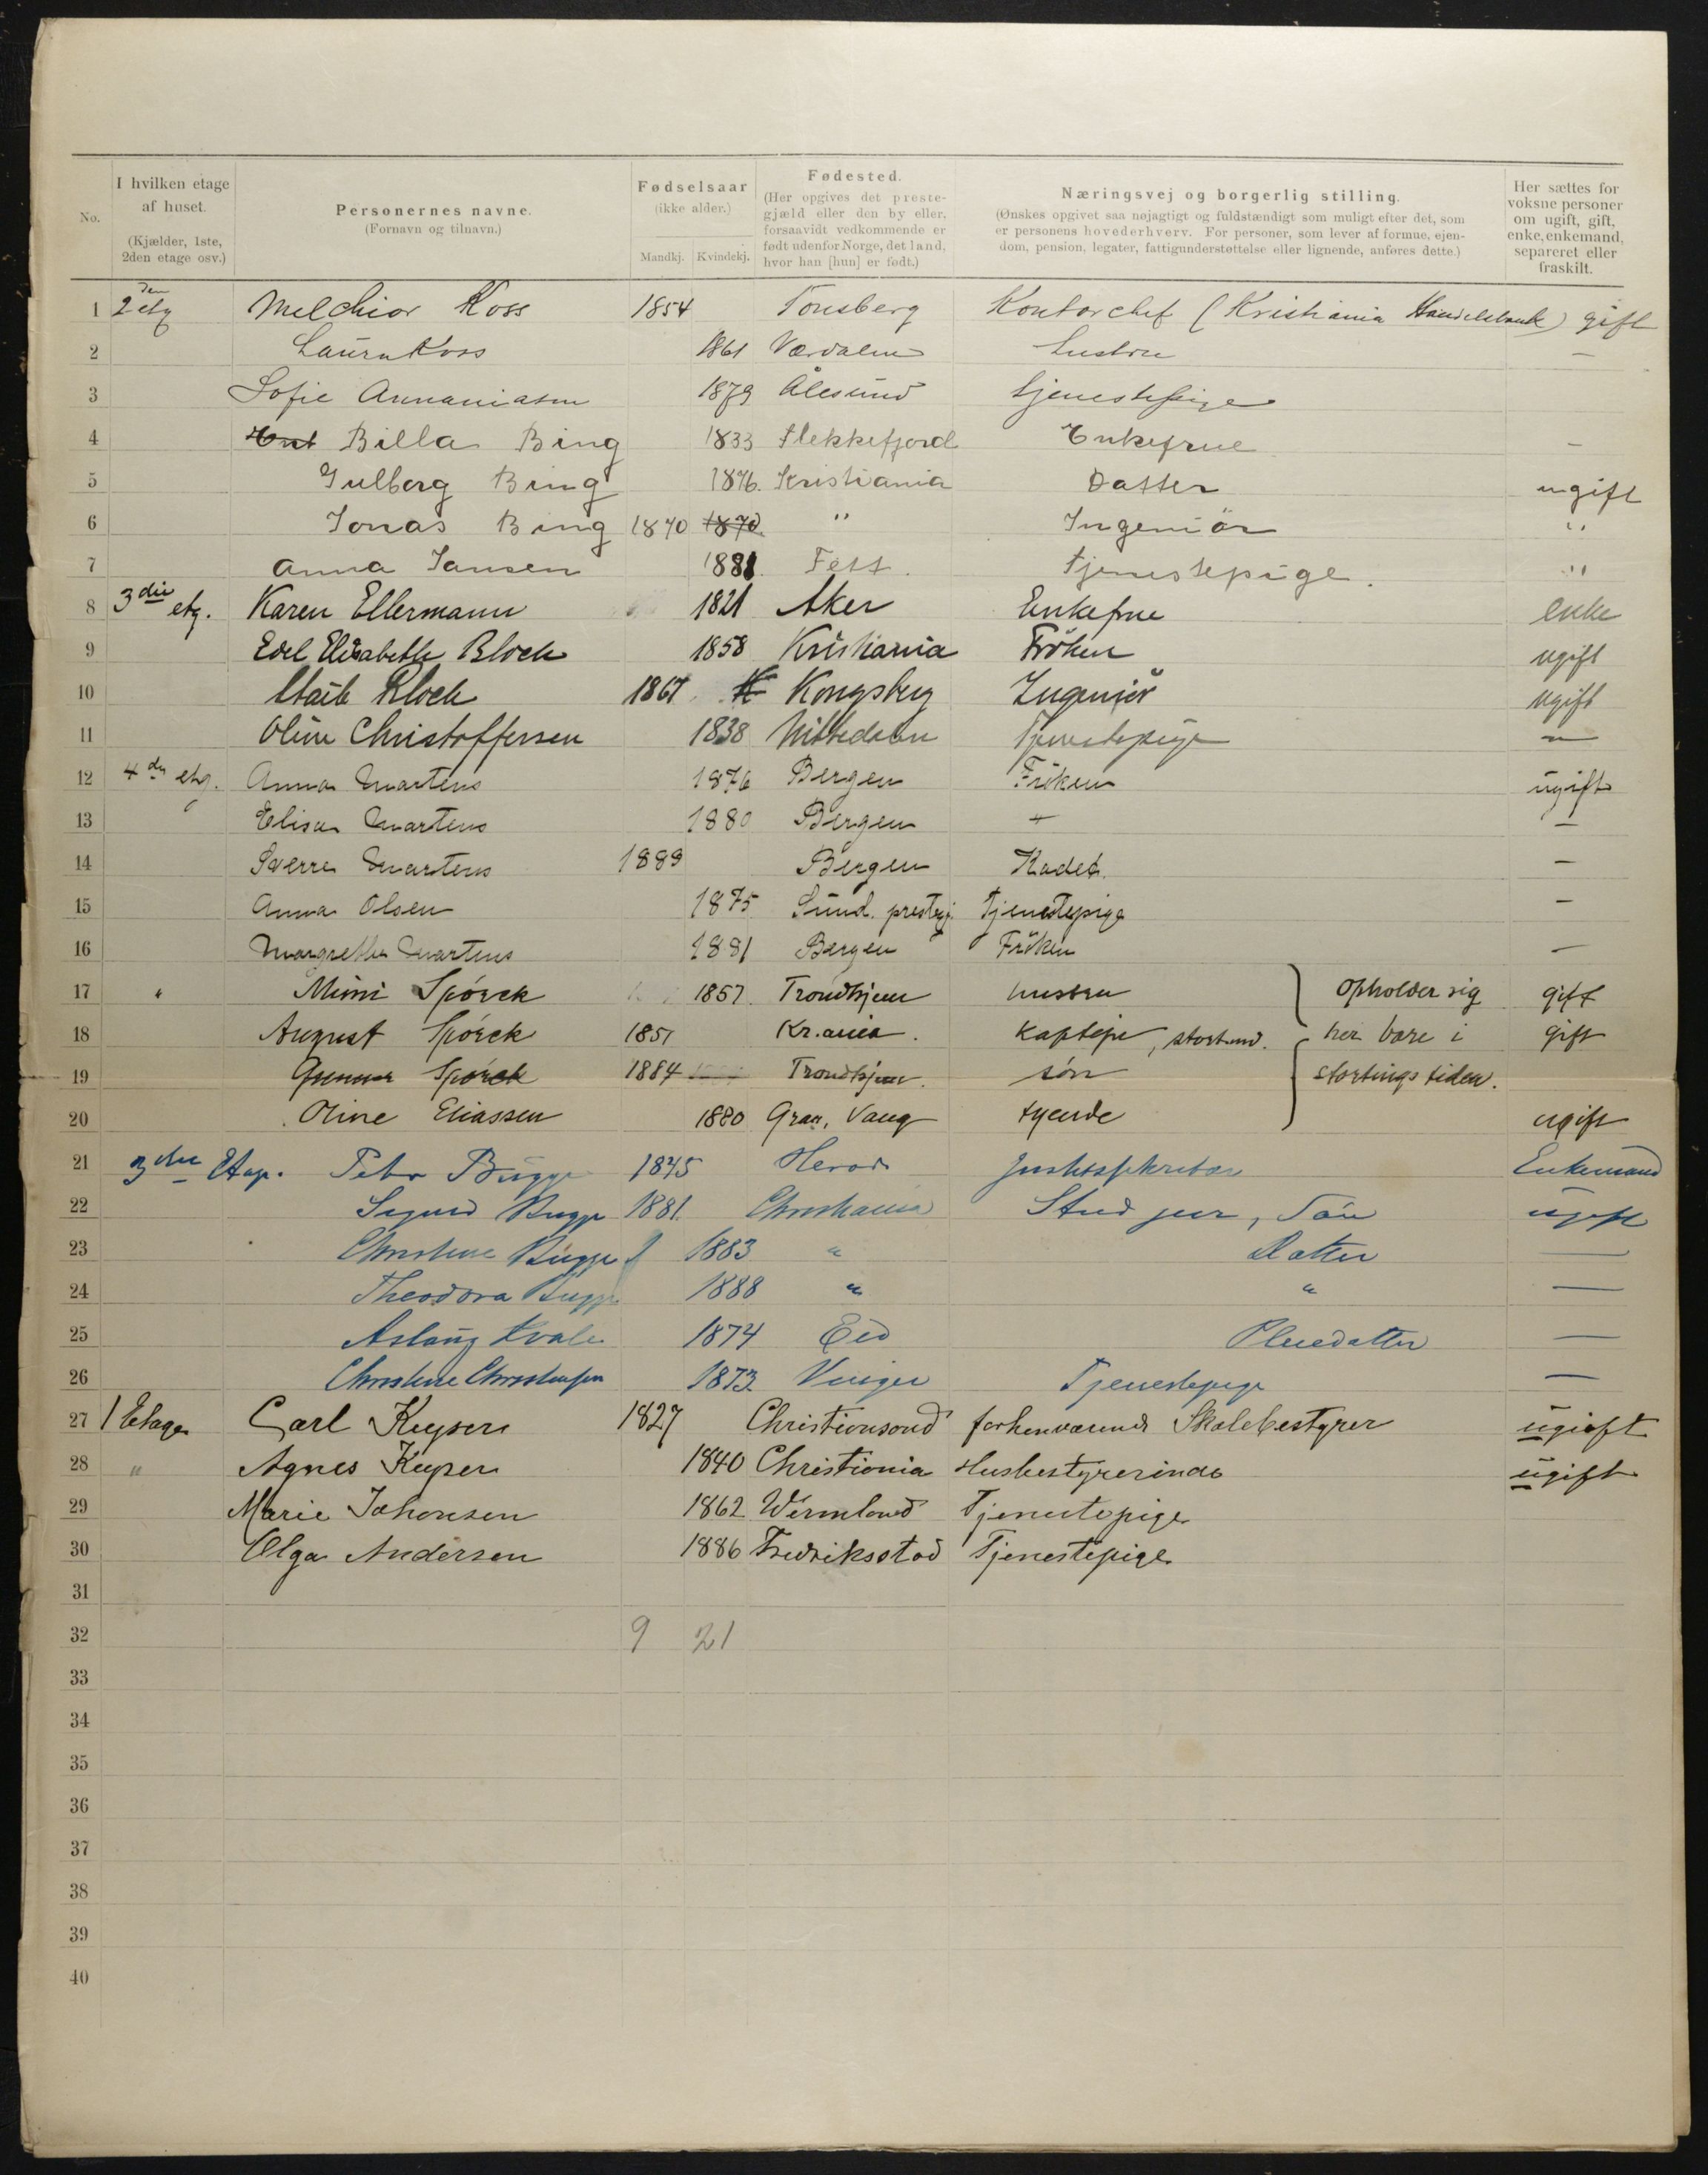 No.
I hvilken etage af huset. (Kjælder, 1ste, 2den etage osv.)
Personernes navne. (Fornavn og tilnavn.)
Fødselsaar (ikke alder.) Mandkj. Kvindekj.
Fødested. (Her opgives det prestegjæld eller den by eller, forsaavidt vedkommende er født udenfor Norge, det land, hvor han [hun] er født.)
Næringsvej og borgerlig stilling. (Ønskes opgivet saa nøjagtigt og fuldstændigt som muligt efter det, som er personens hovederhverv. For personer, som lever af formue, ejendom, pension, legater, fattigunderstøttelse eller lignende, anføres dette.)
Her sættes for voksne personer om ugift, gift, enke, enkemand, separeret eller fraskilt.
1 2den etg Melchior Koss 1854 Tønsberg Kontorchef (Kristiania Handelsbank) gift
2 Laura Koss 1861 Værdalen hustru —
3 Sofie Annaniasen 1879 Ålesund tjenestepige
4 Billa Bing 1833 Flekkefjord Enkefrue —
5 Gulborg Bing 1876. Kristiania Datter ugift
6 Jonas Bing 1870 1870. " Ingeniør "
7 Anna Jansen 1881. Fett. tjenestepige. "
8 3die etg. Karen Ellermann 1821 Aker Enkefrue enke
9 Edel Elisabeth Bloch 1858 Kristiania Frøken ugift
10 Bloch 1867 Kongsberg Ingeniør ugift
11 Oline Christoffersen 1838 Nittedalen Tjenestepige —
12 4de etg. Anna Martens 1876 Bergen Frøken ugift
13 Elisa Martens 1880 Bergen —
14 Sverre Martens 1889 Bergen Kadet. —
15 Anna Olsen 1875 Sund. prestegj. Tjenestepige —
16 Margrethe Martens 1881 Bergen Frøken —
17 " Mimi Spørck 1857. Trondhjem hustru opholder sig gift
18 August Spørck 1851 Kr.ania. kaptejn, stortmd. her bare i gift
19 Gunnar Spørck 1884 Trondhjem. søn stortingstiden.
20 Oline Eliassen 1880 Gran, Vang tyende ugift
21 3die Etage. Peter Bugge 1845 Enkemand
22 Sigurd Bugge 1881. Christiania Stud jur, Søn ugift
23 Christine Bugge 1883 " Datter —
24 Theodora Bugge 1888 " " —
25 Aslaug Kvale 1874 Eid Pleiedatter —
26 Christine Christensen 1873. Vinger Tjenestepige —
27 1 Etage Carl Keyser 1827 Christiansand forhenværende Skolebestyrer ugift
28 " Agnes Keyser 1840 Christiania Husbestyrerinde ugift
29 Marie Johansen 1862 Wermland Tjenestepige
30 Olga Andersen 1886 Fredriksstad Tjenestepige
31
32 9 21
33
34
35
36
37
38
39
40